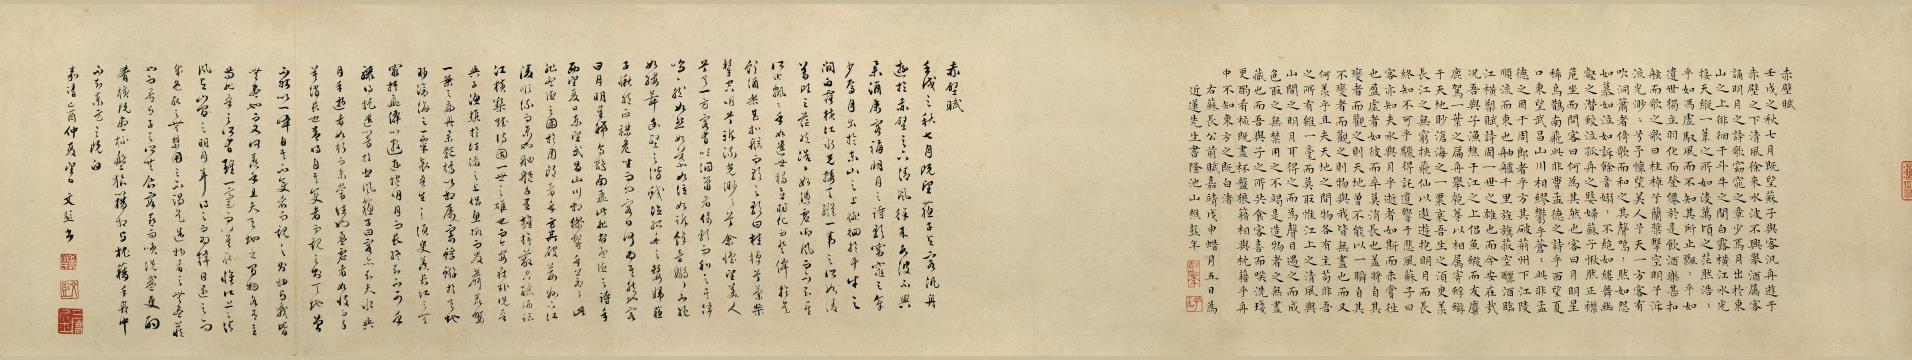 赤壁賦
壬戌之秋七月既望蘇子與客汎舟遊于
赤壁之下清風徐來水波不興舉酒屬客
誦明月之詩歌窈窕之章少焉月出於東
山之上徘徊于斗牛之間白露橫江水光
接天縱一葦之所如凌萬頃之茫然浩:
乎如馮虛馭風而不知其所止飄:乎如
遺世獨立羽化而登僊於是飲酒樂甚扣
舷而歌之歌曰桂棹兮蘭槳擊空明兮泝
流光渺:兮予懷望美人兮天一方客有
吹洞簫者倚歌而和之其聲嗚:然如怨
如慕如泣如訴餘音嫋:不絕如縷舞幽
壑之潛蛟泣孤舟之嫠婦蘇子愀然正襟
危坐而問客曰何為其然也客曰月明星
稀烏鵲南飛此非曹孟德之詩乎西望夏
口東望武昌山川相繆鬱乎蒼:此非孟
德之困于周郎者乎方其破荊州下江陵
順流而東也舳艫千里旌旗蔽空釃酒臨
江橫槊賦詩固一世之雄也而今安在哉
況吾與子漁樵于江之上侶魚鰕而友麋
鹿駕一葉之扁舟舉匏尊以相屬寄蜉蝣
于天地眇滄海之一粟哀吾生之須臾羨
長江之無窮挾飛仙以遨遊抱明月而長
終知不可乎驟得託遺響于悲風蘇子曰
客亦知夫水與月乎逝者如斯而未嘗往
也盈虛者如彼而卒莫消長也蓋將自其
變者而觀之則天地曾不能以一瞬自其
不變者而觀之則物與我皆無盡也而又
何羨乎且夫天地之間物各有主苟非吾
之所有雖一毫而莫取惟江上之清風與
山間之明月耳得之而為聲目遇之而成
色取之無禁用之不竭是造物者之無盡
藏也而吾與子之所共食客喜而咲洗琖
更酌肴核既盡杯盤狼藉相與枕藉乎舟
中不知東方之既白
右蘇長公前賦嘉靖戊申蜡月五日為
近運先生書隆池山樵彭年
赤壁賦
壬戌之秋七月既望蘇子與客汎舟
遊於赤壁之下清風徐來水波不興
舉酒屬客誦明月之詩歌窈窕之章
少焉月出於東山之上徘徊於斗牛之
間白露橫江水光接天縱一葦之所如凌
萬頃之茫然浩浩乎如馮虛御風而不知其
所止飄飄乎如遺世獨立羽化而登仙於是
飲酒樂甚扣舷而歌之歌曰桂棹兮蘭槳
擊空明兮泝流光渺渺兮余懷望美人
兮天一方客有吹洞簫者倚歌而和之其聲
嗚嗚然如怨如慕如泣如訴餘音嫋嫋不絕
如縷舞幽壑之潛蛟泣孤舟之嫠婦蘇
子愀然正襟危坐而問客曰何為其然也客
曰月明星稀烏鵲南飛此非曹孟德之詩乎
西望夏口東望武昌山川相繆鬱乎蒼蒼此
非孟德之困於周郎者乎方其破荊州下江
陵順流而東也舳艫千里旌旗蔽空釃酒臨
江橫槊賦詩固一世之雄也而今安在哉況吾
與子漁樵於江渚之上侶魚蝦而友麋鹿駕
一葉之扁舟舉匏樽以相屬寄蜉蝣於天地
眇滄海之一粟哀吾生之須臾羨長江之無
窮挾飛仙以遨遊抱明月而長終知不可乎
驟得托遺響於悲風蘇子曰客亦知夫水與
月乎逝者如斯而未嘗往也盈虛者如彼而卒
莫消長也蓋將自其變者而觀之則天地曾
不能以一瞬自其不變者而觀之則物與我皆
無盡也而又何羨乎且夫天地之間物各有主
苟非吾之所有雖一毫而莫取惟江上之清
風與山間之明月耳得之而為聲目遇之而
成色取之無禁用之不竭是造物者之無盡藏
也而吾與子之所共食客喜而笑洗盞更酌
肴核既盡杯盤狼藉相與枕藉乎舟中
不知東方之既白
嘉靖乙酉仲夏望文彭書